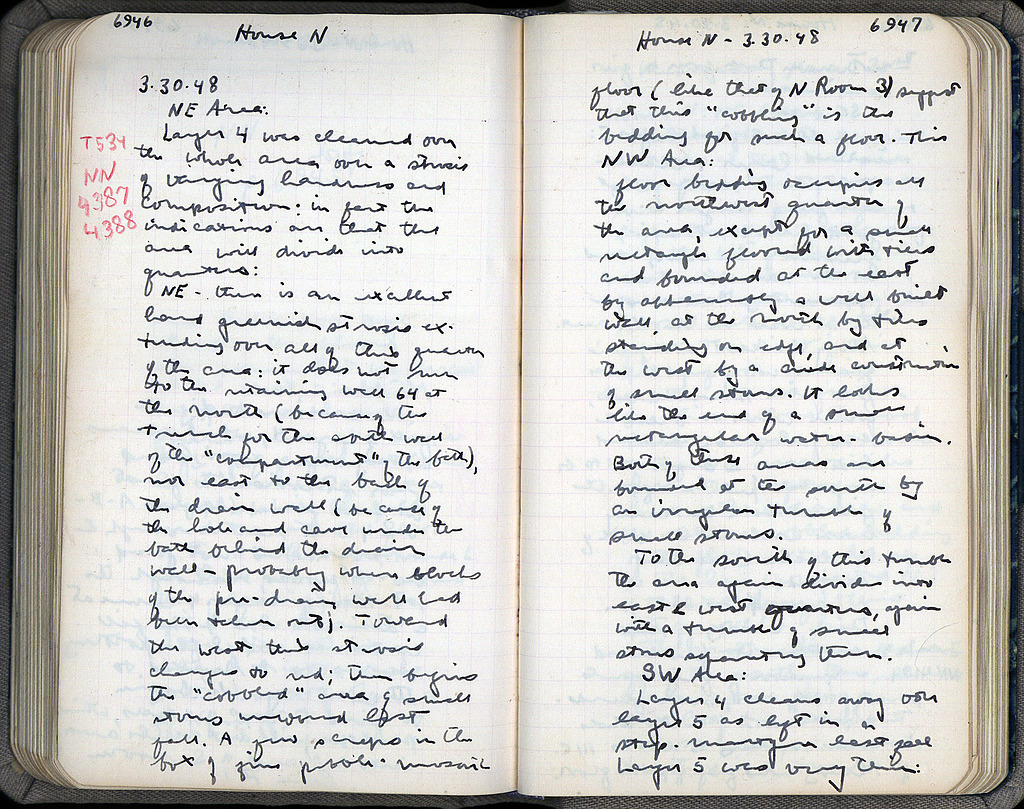 6946
House N
3.30.48
NE Area:
Layer 4 was cleaned over
the whole area over a strosis
of varying hardness and
composition: in fact the
indications are that the
area will divide into
quarters:
NE - there is an excellent
hard greenish strosis ex-
tending over all of this quarter
of the area: it does not run
to the retaining wall 64 at
the north (because of the
trench for the south wall
of the "compartment" of the bath),
nor east to the back of
the drain wall (because of
the hole and cave under the
bath behind the drain
wall - probably where blocks
of the pre-drain wall had
been taken out). Toward
the west this strosis
changes to red; then begins
the "cobbled" area of small
stones uncovered last
fall. A few scraps in the
box of fine pebble-mosaic
T534
NN
4387
4388
House N - 3.30.48
6947
floor (like that of N Room 3) suggest
that this "cobbling" is the
bedding for such a floor. This
NW Area:
floor bedding occupies all
the northwest quarter of
the area, except for a small
rectangle floored with tiles
and bounded at the east
by apparently a well built
wall, at the north by tiles
standing on edge, and at
the west by a crude construction
of small stones. It looks
like the end of a small
rectangular water-basin.
Both of these areas are
bounded at the south by
an irregular tumble of
small stones.
To the south of this tumble
the area again divides into
east & west quarters, again
with a tumble of small
stones separating them.
SW Area:
Layer 4 cleans away over
layer 5 as left in a
step. last fall
Layer 5 was very thin: